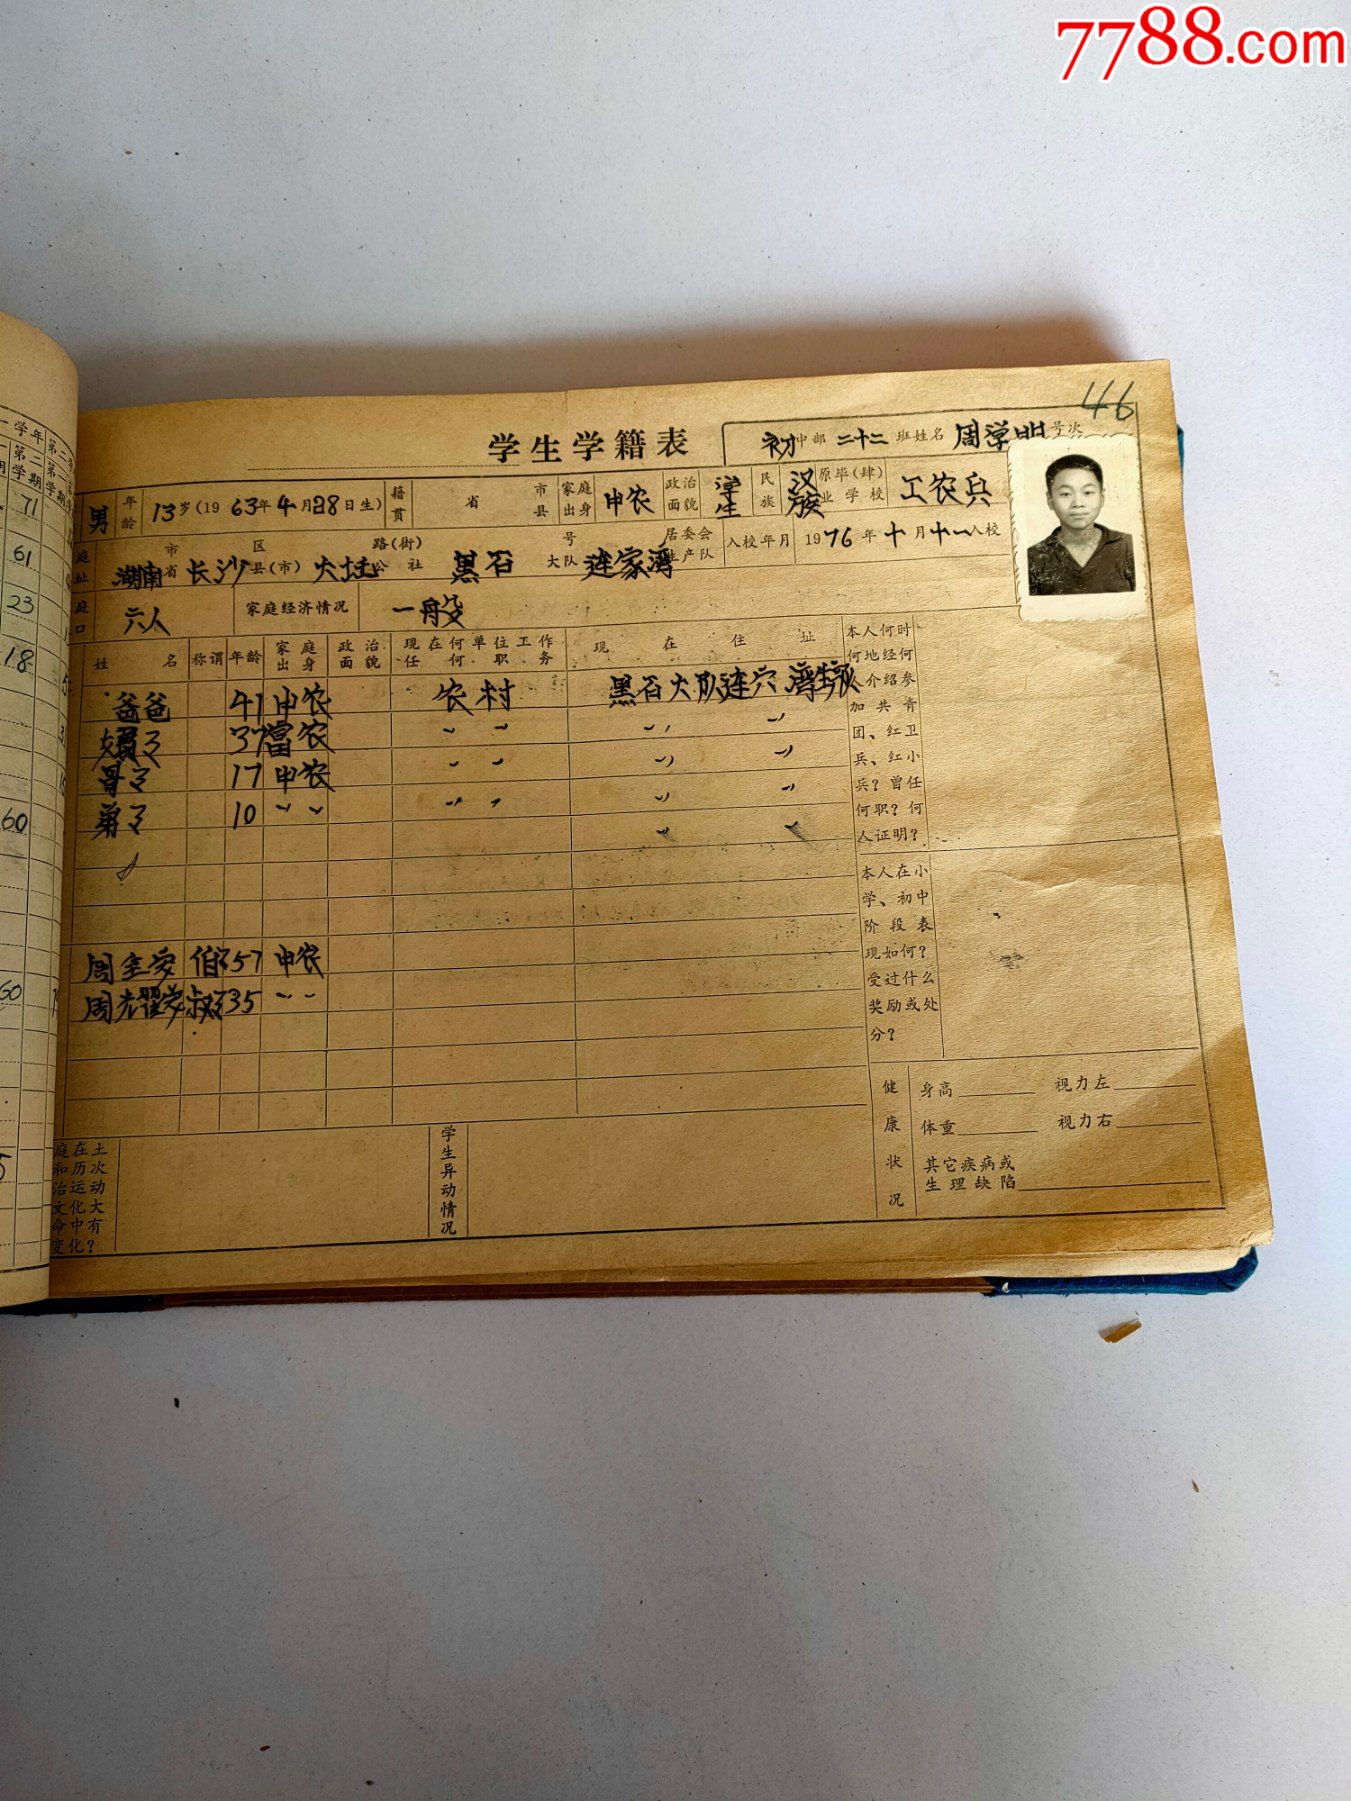 7788.com
46
学生学籍表
初中部 二十二 班 姓名 周学明 号次
男 年龄 13岁(1963年4月28日生) 籍贯 省 市县 家庭出身 中农 政治面貌 学生 民族 汉族 原毕(肄)业学校 工农兵
庭址 湖南 市省 长沙 区县(市) 路(街)公社 黑石 号大队 连家湾 居委会生产队 入校年月 1976年十月十一入校
庭口 六人 家庭经济情况 一般
姓名 称谓 年龄 家庭出身 政治面貌 现在何单位工作任何职务 现在住址
爸爸 41 中农 农村 黑石大队连
37 富农 〃 〃 〃 〃
哥 17 中农 〃 〃 〃 〃
弟 10 〃 〃 〃 〃 〃 〃
〃 〃
57 中农
35 〃 〃
本人何时何地经何人介绍参加共青团、红卫兵、红小兵?曾任何职?何人证明?
本人在小学、初中阶段表现如何?受过什么奖励或处分?
健康状况
身高 视力左
体重 视力右
其它疾病或生理缺陷
庭在土和历次治运动文化大命中有变化?
学生异动情况
一学年 第二
第二学期 第一学期
71
61
23
18
60
60
5